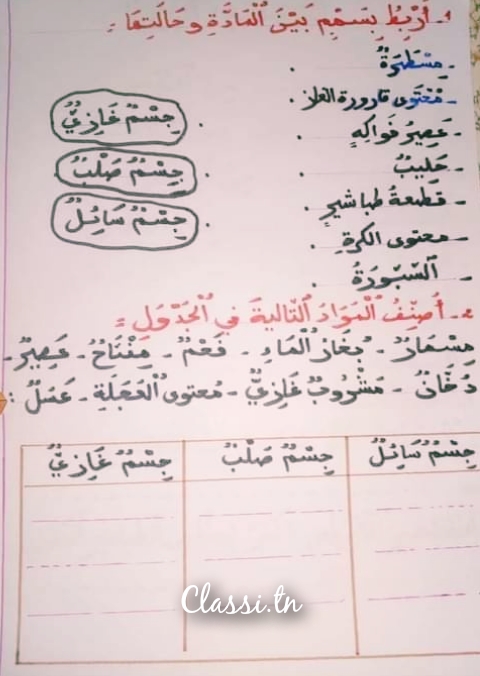 1- أَرْبِطُ بِسَهْمٍ بَيْنَ الْمَادَّةِ وَحَالَتِهَا :
- مِسْطَرَةٌ .
- مُحْتَوَى قارورة الغاز .
- عَصِيرُ فَوَاكِهٍ .
- حَلِيبٌ .
- قطعةُ طباشيرٍ .
- محتوى الكرةِ .
- السَّبُّورَةُ
. جِسْمٌ غَازِيٌّ
. جِسْمٌ صَلْبٌ
. جِسْمٌ سَائِلٌ
2- أُصَنِّفُ الْمَوَادَ التَّالِيَةَ فِي الْجَدْوَلِ :
مِسْمَارٌ - بُخَارُ الْمَاءِ - فَحْمٌ - مِفْتَاحٌ - عَصِيرٌ -
دُخَانٌ - مَشْرُوبٌ غَازِيٌّ - مُحتوى الْعَجَلَةِ - عَسَلٌ :
جِسْمٌ سَائِلٌ جِسْمٌ صَلْبٌ جِسْمٌ غَازِيٌّ
Classi.tn